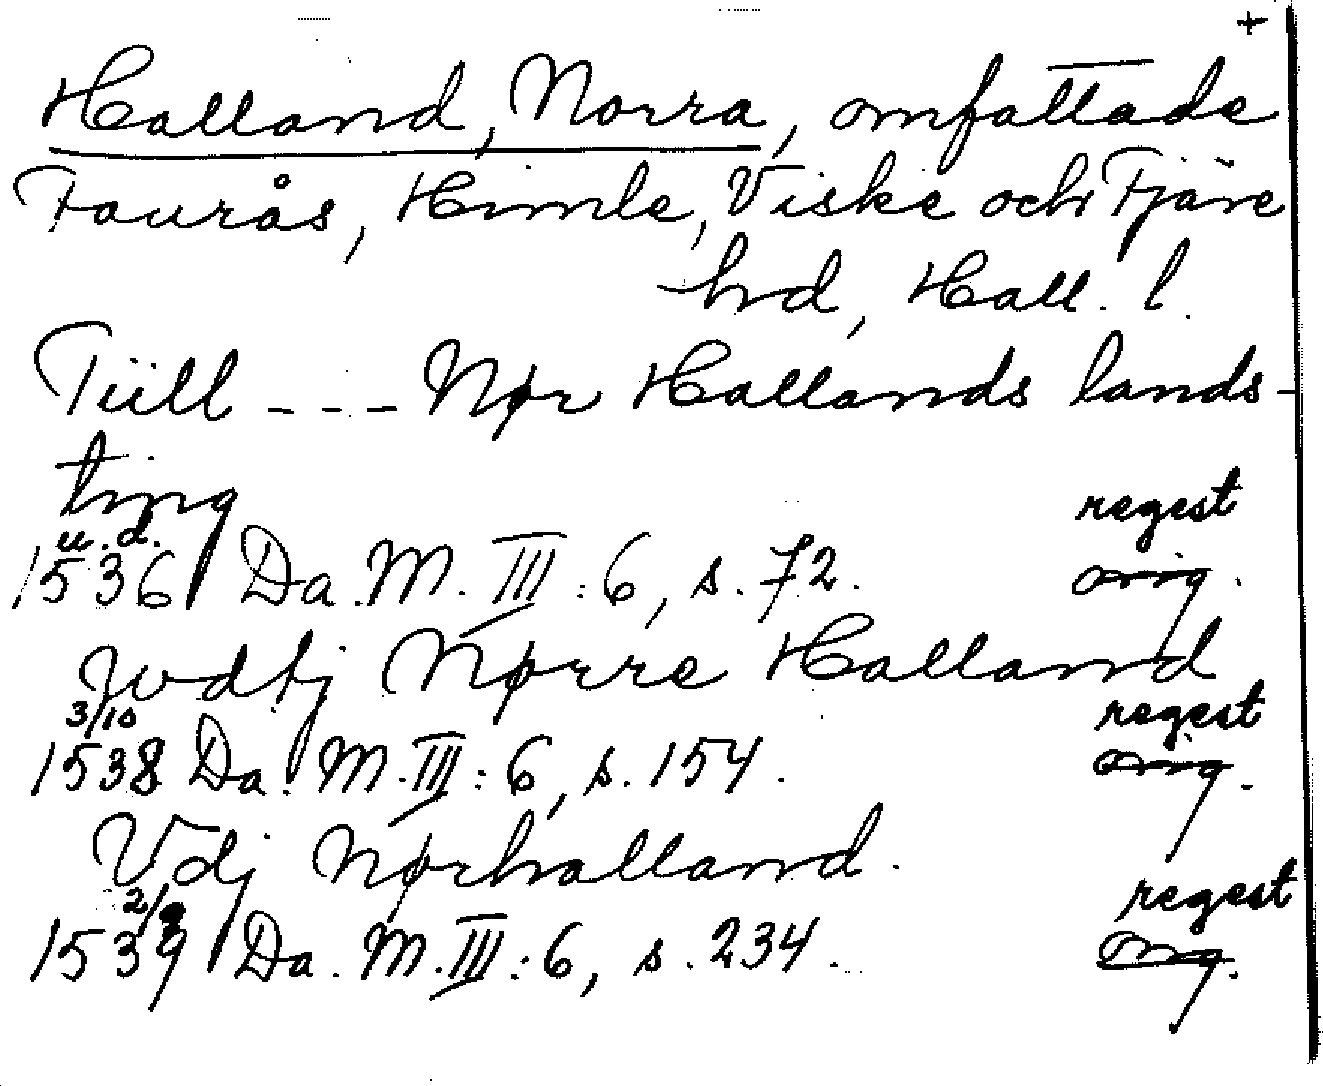 +
Halland, Norra, omfattade
Faurås, Himle, Viske och Fjäre
hd, Hall. l.
Tiill --- Nør Hallands lands-
ting
u.d. regest
1536 Da.M. III:6, s.72. orig.
wdtj Nørre Halland
3/10 regest
1538 Da.M.III:6, s.154. orig.
Vdj Nørhalland.
regest
1539 Da.M.III:6, s.234. orig.